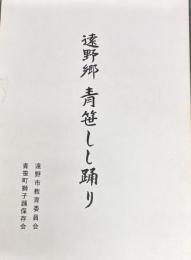 遠野郷 青笹しし踊り
遠野市教育委員会
青笹町獅子踊保存会